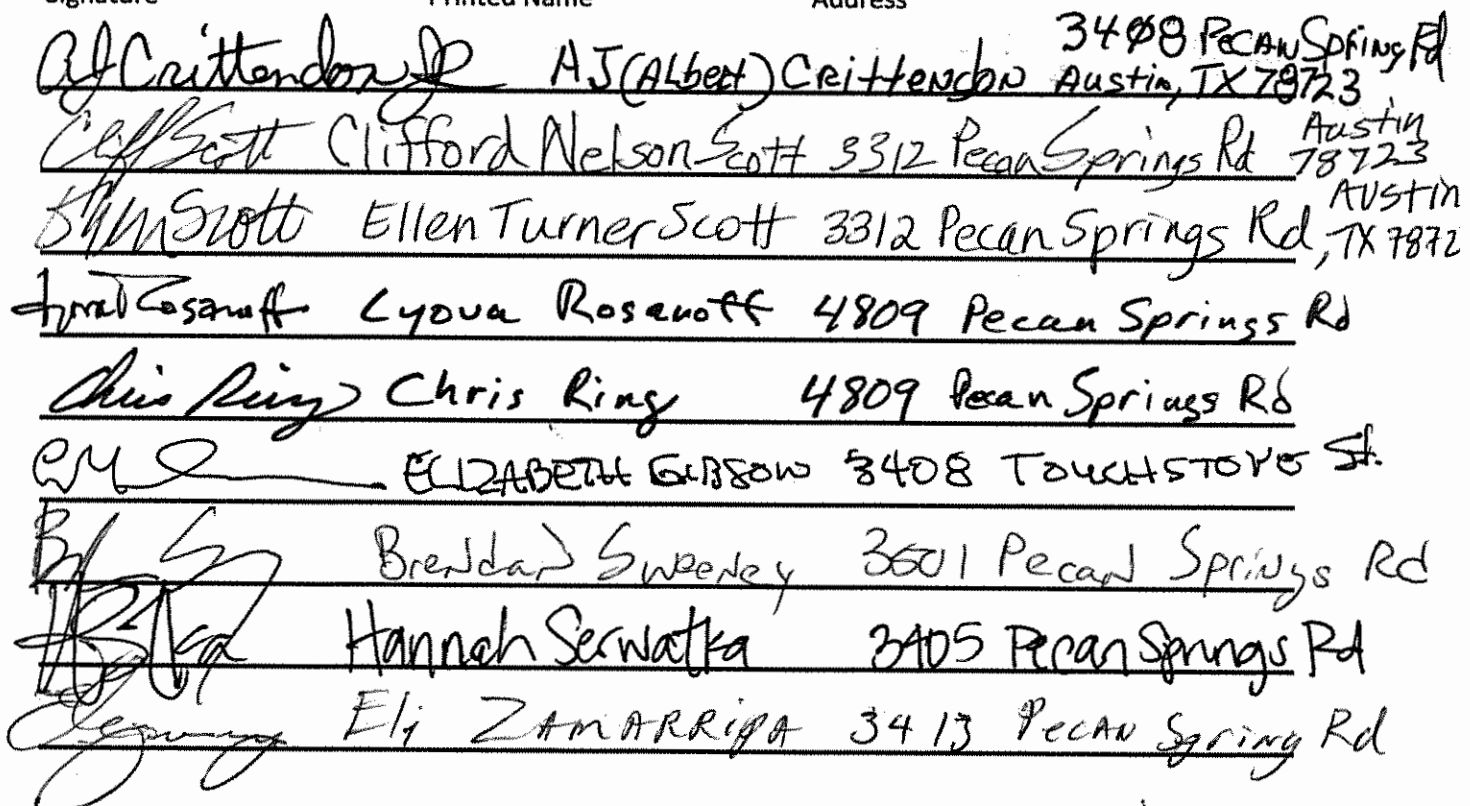 Signature Printed Name Address
AJ Crittendon Jr AJ (Albert) Crittendon 3408 Pecan Spring Rd
Austin, TX 78723
Cliff Scott Clifford Nelson Scott 3312 Pecan Springs Rd Austin
78723
Scott Ellen Turner Scott 3312 Pecan Springs Rd Austin
, TX 7872
Rosanoff Lyova Rosanoff 4809 Pecan Springs Rd
Chris Ring Chris Ring 4809 Pecan Springs Rd
ELIZABETH GIBSON 3408 TOUCHSTONE St.
Brendan Sweeney 3601 Pecan Springs Rd
Hannah Serwatka 3405 Pecan Springs Rd
Eli ZAMARRIPA 3413 Pecan Spring Rd